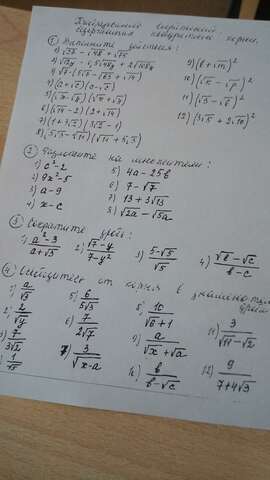 Преобразование выражений,
содержащих квадратные корни.
① Выполните действия:
1) √27 - √48 + √75
4) (a+√c)(a-√c)
5) (√x-√y)(√x+√y)
6) (√11-2)(2+√11)
7) (1+3√2)(3√2-1)
8) (5√3-√11)(√11+5√3)
9) (b+√m)²
10) (√x-√p)²
11) (√3-√5)²
12) (3√5+2√10)²
② Разложите на множители:
1) c²-2
2) 9x²-5
3) a-9
4) x-c
5) 4a-25b
6) 7-√7
7) 13+3√13
8) √2a-√5a
③ Сократите дробь:
1) a²-3 / a+√3
2) √7-y / 7-y²
3) 5-√5 / √5
4) √b-√c / b-c
④ Освободитесь от корня в знаменателе дроби
1) a / √3
2) 2 / √y
3) 7 / 3√2
5) 6 / 5√3
6) 7 / 2√7
7) 3 / √x-a
8) 10 / √6+1
9) a / √x+√a
10) b / b-√c
11) 3 / √11-√2
12) 9 / 7+4√3